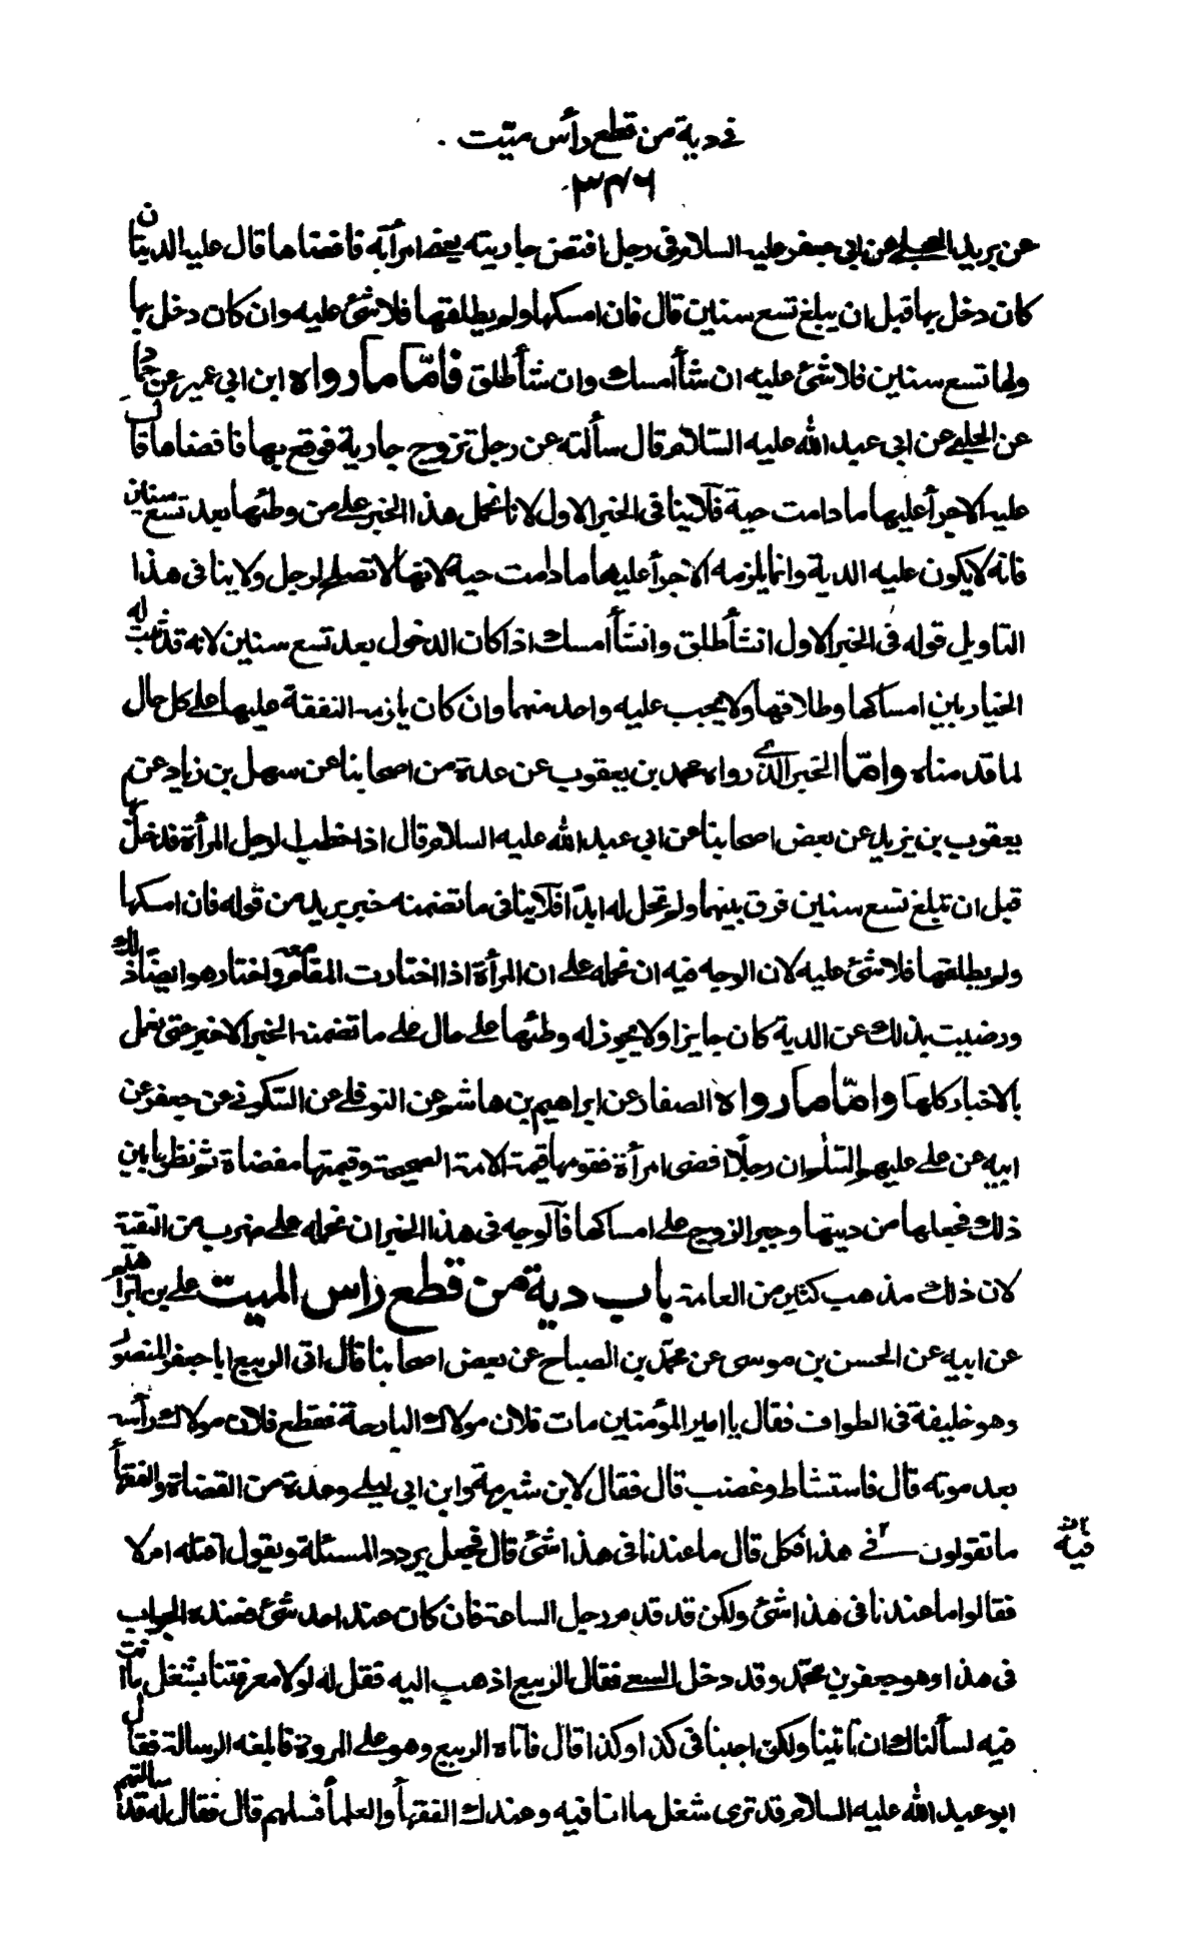 في دية من قطع رأس ميّت
٣٤٦
عن بريد العجلي عن ابي جعفر عليه السلام في رجل افتض جاريته يعني امرأته فافضاها قال عليه الدية ان
كان دخل بها قبل ان يبلغ تسع سنين قال فان امسكها ولم يطلقها فلا شئ عليه وان كان دخل بها
ولها تسع سنين فلا شئ عليه ان شأ امسك وان شأ طلق فامّا ما رواه ابن ابي عمير عن حماد
عن الحلبي عن ابي عبد الله عليه السّلام قال سألته عن رجل تزوج جارية فوقع بها فافضاها قال
عليه الاجرأ عليها ما دامت حية فلا ينافي الخبر الاول لانا نحمل هذا الخبر على من وطئها بعد تسع سنين
فانه لا يكون عليه الدية وانما يلزمه الاجرأ عليها ما دامت حية لانها لا تصلح لرجل ولا ينافي هذا
التاويل قوله في الخبر الاول ان شأ طلق وان شأ امسك اذا كان الدخول بعد تسع سنين لانه قد ثبت له
الخيار بين امساكها وطلاقها ولا يجب عليه واحد منهما وان كان يلزمه النفقة عليها على كل حال
لما قدمناه وامّا الخبر الذي رواه محمد بن يعقوب عن عدة من اصحابنا عن سهل بن زياد عن
يعقوب بن يزيد عن بعض اصحابنا عن ابي عبد الله عليه السلام قال اذا خطب الرجل المرأة فدخل بها
قبل ان تبلغ تسع سنين فرق بينهما ولم تحل له ابدًا فلا ينافي ما تضمنه خبر بريد من قوله فان امسكها
ولم يطلقها فلا شئ عليه لان الوجه فيه ان نحمله على ان المرأة اذا اختارت المقام معه واختار هو ايضًا ذلك
ورضيت بذلك عن الدية كان جايزا ولا يجوز له وطئها على حال على ما تضمنه الخبر الاخير حتى نعمل
بالاخبار كلها وامّا ما رواه الصفار عن ابراهيم بن هاشم عن النوفلي عن السّكوني عن جعفر عن
ابيه عن علي عليهم السّلام ان رجلًا افضى امرأة فقومها قيمة الامة الصحيحة وقيمتها مفضاة ثم نظر ما بين
ذلك فجعلها من ديتها وجبر الزوج على امساكها فالوجه في هذا الخبر ان نحمله على ضرب من التقية
لان ذلك مذهب كثير من العامة باب دية من قطع راس الميت علي بن ابراهيم
عن ابيه عن الحسن بن موسى عن محمّد بن الصباح عن بعض اصحابنا قال اتى الربيع ابا جعفر المنصور
وهو خليفة في الطواف فقال يا امير المؤمنين مات فلان مولاك البارحة فقطع فلان مولاك رأسه
بعد موته قال فاستشاط وغضب قال فقال لابن شبرمة وابن ابي ليلى وعدة من القضاة والفقهأ
ما تقولون في هذا فكل قال ما عندنا في هذا شئ قال فجعل يردد المسئلة ويقول اقتله ام لا
فقالوا ما عندنا في هذا شئ ولكن قد قدم رجل الساعة فان كان عند احد شئ فعنده الجواب
في هذا وهو جعفر بن محمّد وقد دخل السعي فقال للربيع اذهب اليه فقل له لولا معرفتنا بشغل ما انت
فيه لسألناك ان تاتينا ولكن اجبنا في كذا وكذا قال فاتاه الربيع وهو على المروة فابلغه الرسالة فقال
ابو عبد الله عليه السلام قد ترى شغل ما انا فيه وعندك الفقهأ والعلمأ فسلهم قال فقال له قد سالتهم